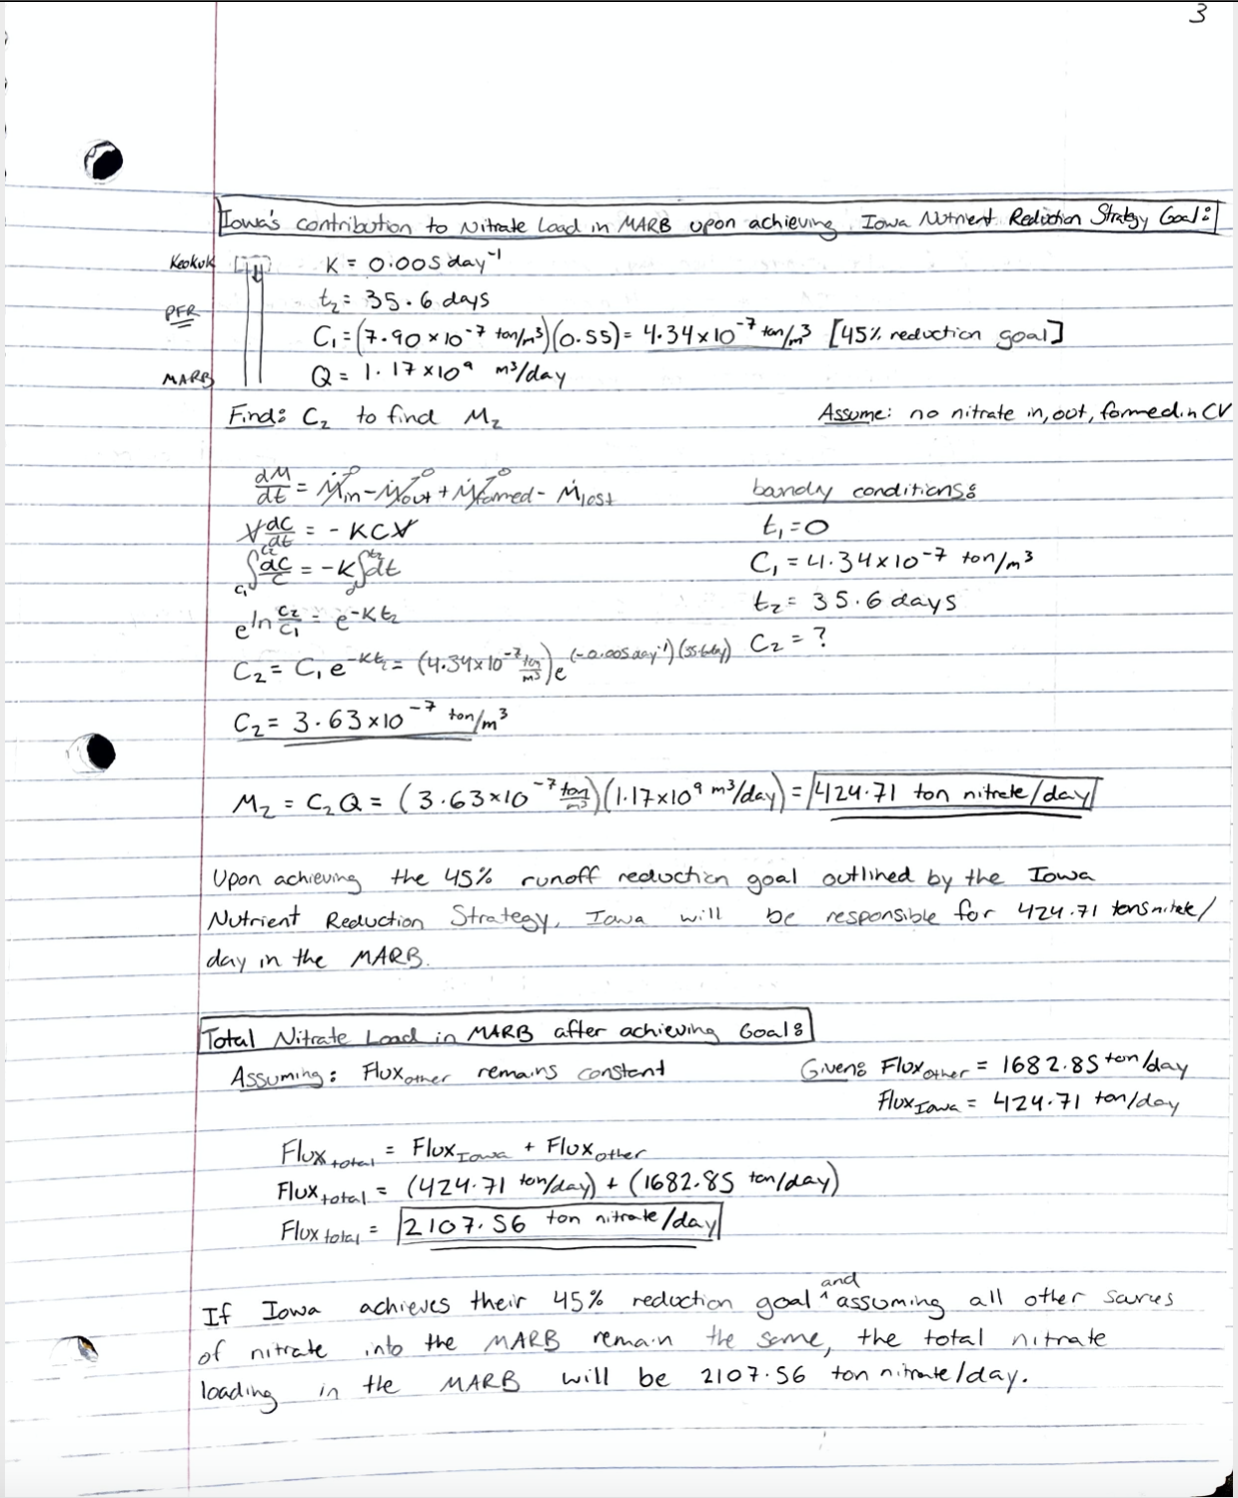 3
Iowa's contribution to Nitrate Load in MARB upon achieving Iowa Nutrient Reduction Strategy Goal:
Keokuk
K = 0.005 day⁻¹
t₂ = 35.6 days
PFR
C₁ = (7.90 × 10⁻⁷ ton/m³)(0.55) = 4.34 × 10⁻⁷ ton/m³ [45% reduction goal]
MARB
Q = 1.17 × 10⁹ m³/day
Find: C₂ to find M₂
Assume: no nitrate in, out, formed in CV
dM/dt = Ṁin⁰ - Ṁout⁰ + Ṁformed⁰ - Ṁlost
boundry conditions:
V dC/dt = -KCV
t₁ = 0
∫c₁^c₂ dC/C = -K∫₀^t₂ dt
C₁ = 4.34 × 10⁻⁷ ton/m³
t₂ = 35.6 days
e^ln C₂/C₁ = e^-Kt₂
C₂ = ?
C₂ = C₁e^-Kt₂ = (4.34 × 10⁻⁷ ton/m³)e^(-0.005 day⁻¹)(35.6 day)
C₂ = 3.63 × 10⁻⁷ ton/m³
M₂ = C₂Q = (3.63 × 10⁻⁷ ton/m³)(1.17 × 10⁹ m³/day) = 424.71 ton nitrate/day
Upon achieving the 45% runoff reduction goal outlined by the Iowa
Nutrient Reduction Strategy, Iowa will be responsible for 424.71 tons nitrate/
day in the MARB.
Total Nitrate Load in MARB after achieving Goal:
Assuming: Flux other remains constant
Given: Flux other = 1682.85 ton/day
Flux Iowa = 424.71 ton/day
Flux total = Flux Iowa + Flux other
Flux total = (424.71 ton/day) + (1682.85 ton/day)
Flux total = 2107.56 ton nitrate/day
If Iowa achieves their 45% reduction goal ^and assuming all other sources
of nitrate into the MARB remain the same, the total nitrate
loading in the MARB will be 2107.56 ton nitrate/day.